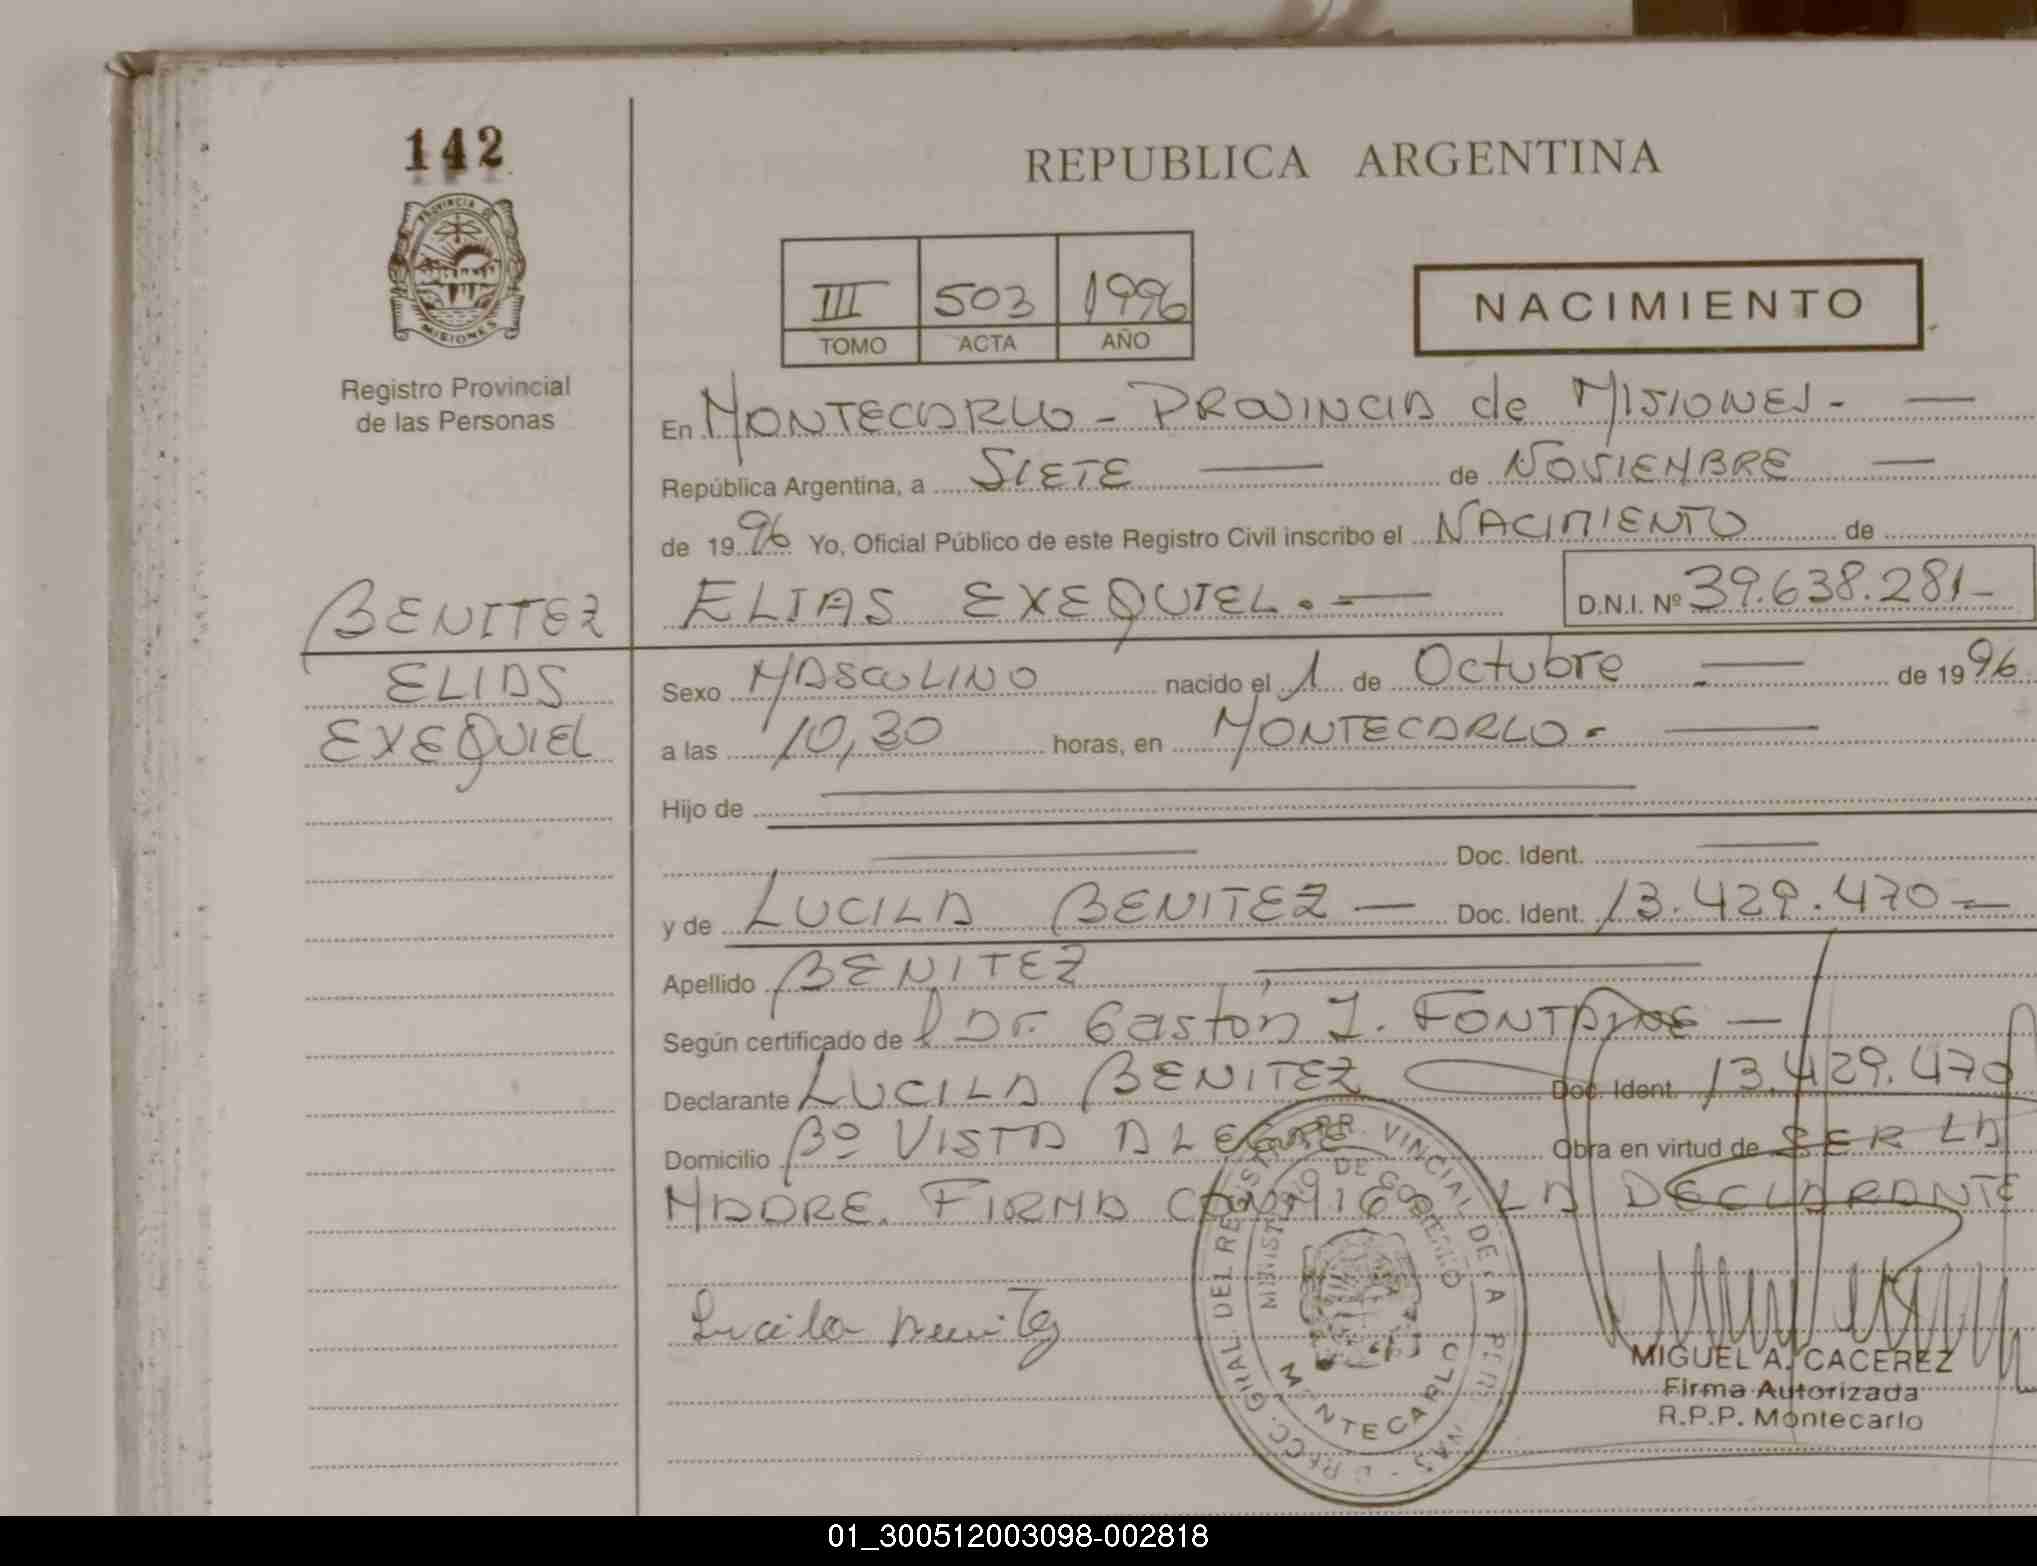 142
REPUBLICA ARGENTINA
PROVINCIA DE
MISIONES
III 503 1996
TOMO ACTA AÑO
NACIMIENTO
Registro Provincial
de las Personas
En MONTECARLO - PROVINCIA de MISIONES.- —
República Argentina, a SIETE — de NOVIEMBRE —
de 1996 Yo, Oficial Público de este Registro Civil inscribo el NACIMIENTO de
BENITEZ ELIAS EXEQUIEL.- — D.N.I. Nº 39.638.281-
ELIAS
EXEQUIEL
Sexo MASCULINO nacido el 1 de Octubre — de 1996
a las 10,30 horas, en MONTECARLO.- —
Hijo de —
— Doc. Ident. —
y de LUCILA BENITEZ — Doc. Ident. 13.429.470.—
Apellido BENITEZ —
Según certificado de l Dr. Gastón J. FONTAINE —
Declarante LUCILA BENITEZ Doc. Ident. 13.429.470
Domicilio Bº VISTA ALEGRE Obra en virtud de SER LA
MADRE. FIRMA CONMIGO LA DECLARANTE
Lucila Benitez
DIRECC. GRAL. DEL REGISTRO PROVINCIAL DE LA PERSONAS
MINISTERIO DE GOBIERNO
MONTECARLO
MIGUEL A. CACEREZ
Firma Autorizada
R.P.P. Montecarlo
01_300512003098-002818